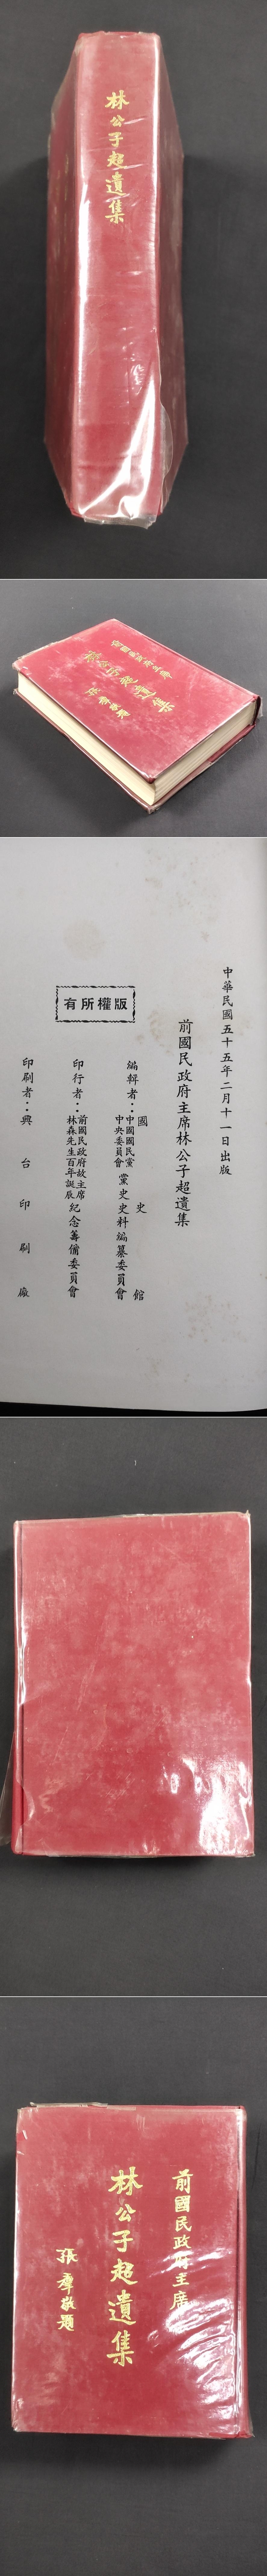 林公子超遺集
前國民政府主席
林公子超遺集
張羣敬題
中華民國五十五年二月十一日出版
前國民政府主席林公子超遺集
編輯者：國史館
中國國民黨中央委員會黨史史料編纂委員會
印行者：前國民政府故主席林森先生百年誕辰紀念籌備委員會
印刷者：興台印刷廠
版權所有
前國民政府主席
林公子超遺集
張羣敬題